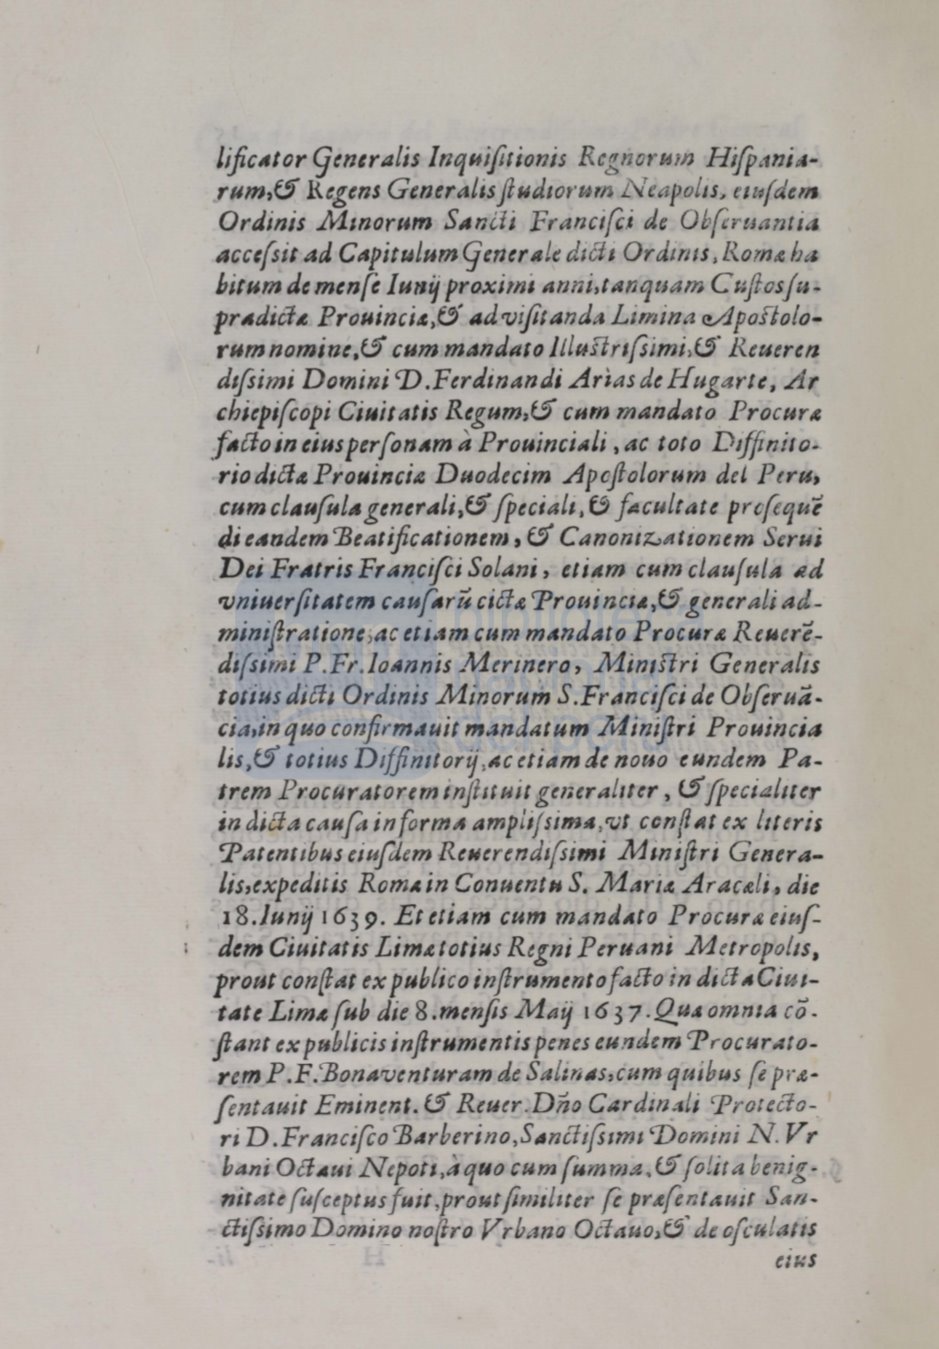 lificator Generalis Inquiſitionis Regnorum Hiſpania-
rum,& Regens Generalis ſtudiorum Neapolis, eiuſdem
Ordinis Minorum Sancti Franciſci de Obſeruantia
acceſsit ad Capitulum Generale dicti Ordinis, Romæ ha
bitum de menſe Iunij proximi anni,tanquam Cuſtos ſu-
pradictæ Prouinciæ,& ad viſitanda Limina Apoſtolo-
rum nomine,& cum mandato Illuſtriſsimi,& Reueren
diſsimi Domini D.Ferdinandi Arias de Hugarte, Ar
chiepiſcopi Ciuitatis Regum,& cum mandato Procuræ
facto in eius perſonam à Prouinciali , ac toto Diffinito-
rio dictæ Prouinciæ Duodecim Apoſtolorum del Peru,
cum clauſula generali,& ſpeciali,& facultate proſequē
di eandem Beatificationem , & Canonizationem Serui
Dei Fratris Franciſci Solani , etiam cum clauſula ad
vniuerſitatem cauſarū cictæ Prouinciæ,& generali ad-
miniſtratione,ac etiam cum mandato Procuræ Reuerē-
diſsimi P.Fr.Ioannis Merinero, Miniſtri Generalis
totius dicti Ordinis Minorum S.Franciſci de Obſeruā-
cia,in quo confirmauit mandatum Miniſtri Prouincia
lis,& totius Diffinitorij,ac etiam de nouo eundem Pa-
trem Procuratorem inſtituit generaliter , & ſpecialiter
in dicta cauſa in forma ampliſsima,vt conſtat ex literis
Patentibus eiuſdem Reuerendiſsimi Miniſtri Genera-
lis,expeditis Romæ in Conuentu S. Mariæ Aracæli, die
18.Iunij 1639. Et etiam cum mandato Procuræ eiuſ-
dem Ciuitatis Limæ totius Regni Peruani Metropolis,
prout conſtat ex publico inſtrumento facto in dicta Ciui-
tate Limæ ſub die 8.menſis Maij 1637.Quæ omnia cō-
ſtant ex publicis inſtrumentis penes eundem Procurato-
rem P.F.Bonaventuram de Salinas,cum quibus ſe præ-
ſentauit Eminent.& Reuer.Dño Cardinali Protecto-
ri D.Franciſco Barberino,Sanctiſsimi Domini N.Vr
bani Octaui Nepoti,à quo cum ſumma,& ſolita benig-
nitate ſuſceptus fuit,prout ſimiliter ſe præſentauit San-
ctiſsimo Domino noſtro Vrbano Octauo,& de oſculatis
eius